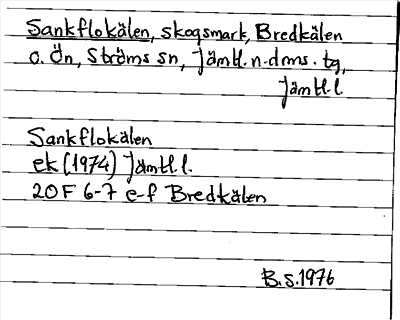 Sankflokälen, skogsmark, Bredkälen
o. Ön, Ströms sn, Jämtl. n. dms. tg,
Jämtl. l.
Sankflokälen
ek (1974) Jämtl. l.
20F 6-7 e-f Bredkälen
B. S. 1976